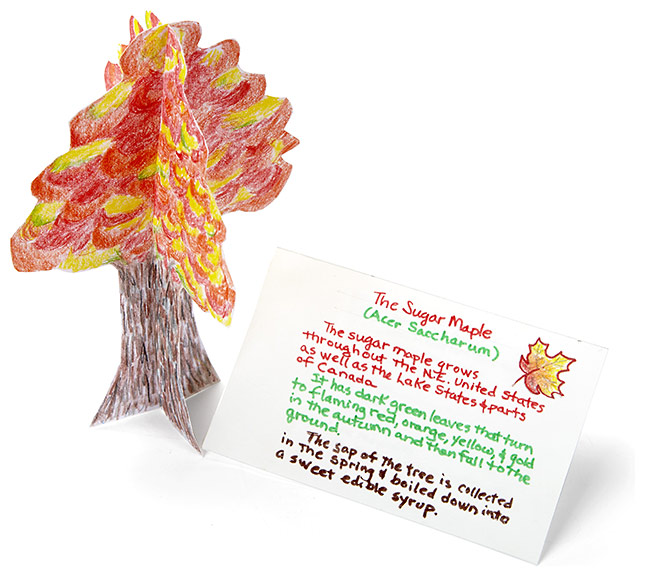 The Sugar Maple
(Acer Saccharum)
The sugar maple grows
throughout the N.E. United States
as well as the Lake States & parts
of Canada
It has dark green leaves that turn
to flaming red, orange, yellow, & gold
in the autumn and then fall to the
ground.
The sap of the tree is collected
in the spring & boiled down into
a sweet edible syrup.